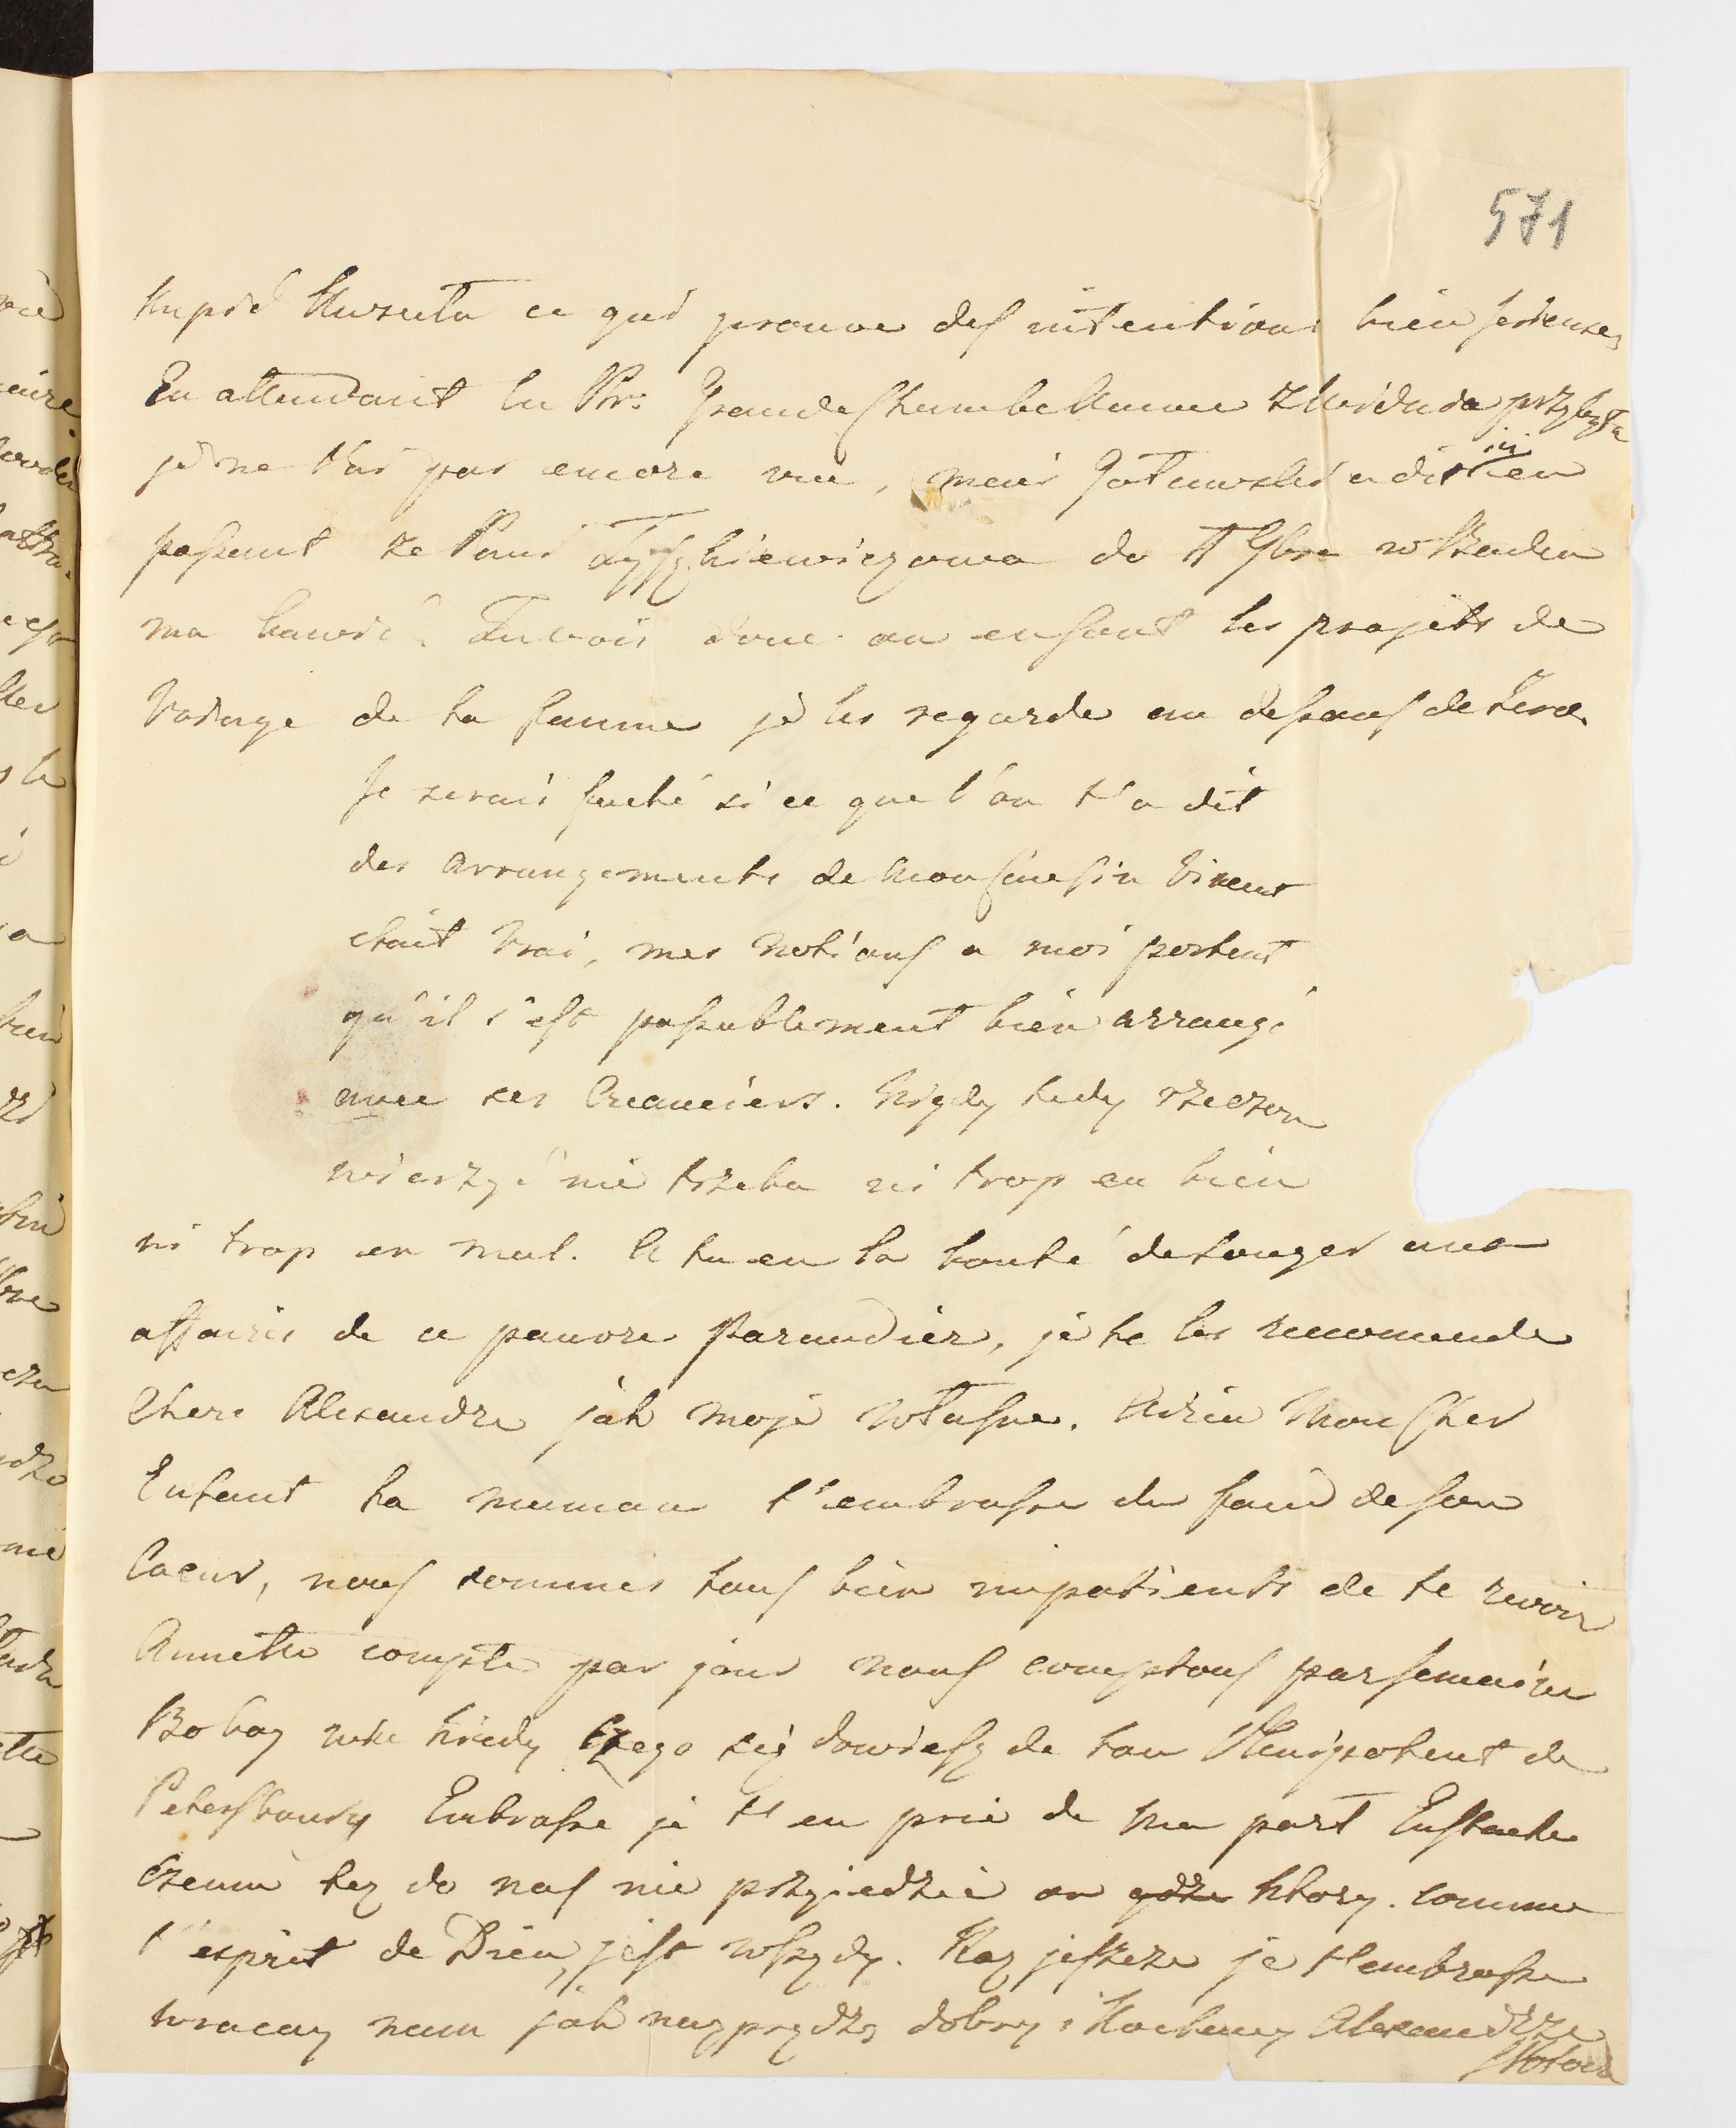 571
Kupić ce qui prouve des intentions bien serieuses
En attendant la Pr: Grande Chambellanne z Widnia przybyła
je ne l'ai pas encore vue, mais a dit ici en
passant ze Pani Tyszkiewiczowa do wszendu
ma bawić. Tu vois donc on enfant les projets de
voiage de ta femme je les regarde au dessous de zero.
Je serais faché si ce que l'on t'a dit
des arrangements de Monsieur Vincent
etait vrai, mes notions a moi portent
qu'il s'est passablement bien arrangé
avec ses Creanciers. Nigdy tedy rzeczom
wierzyć nie trzeba ni trop en bien
ni trop en mal. A tu eu la bonté de songer aux
affaires de ce pauvre Parandier, je te les recomende
Chere Alexandre jak moje własne. Adieu Mon Cher
Enfant ta maman t'embrasse du fond de son
Coeur, nous sommes tous bien impatients de te revoir
Annette compte par jour nous comptons par semaines
Bo Bog wie kiedy czego się dowiesz de ton Plenipotent de
Petersbourg Embrasse je t'en prie de ma part Eustache
czemu tez do nas nie przyiedzie on gdzie ktory. comme
l'esprit de Dieu, jest wszędy. Raz jeszcze je t'embrasse
wracay nam jak nayprędzy dobry i Kochany Alexandrze